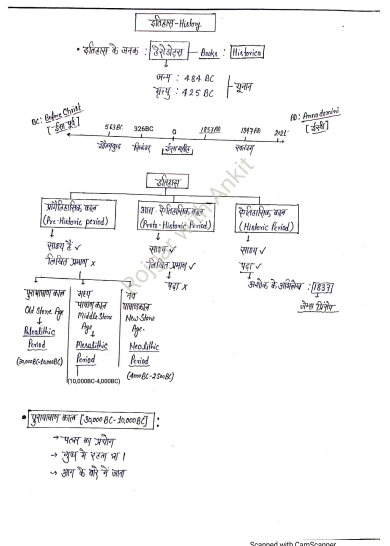 इतिहास-History
• इतिहास के जनक : हेरोडोटस — Books : Historica
जन्म : 484 BC
मृत्यु : 425 BC
यूनान
BC: Before Christ
[ईसा पूर्व]
AD: Anno domini
[ईस्वी]
563BC 326BC 0 1857AD 1947AD 2021
गौतमबुद्ध सिकंदर
इतिहास
प्रागैतिहासिक काल
(Pre-Historic period)
आद्य ऐतिहासिक काल
(Proto-Historic Period)
ऐतिहासिक काल
(Historic Period)
साक्ष्य है ✓
लिखित प्रमाण x
साक्ष्य ✓
लिखित प्रमाण ✓
पढ़ा x
साक्ष्य ✓
पढ़ा ✓
अशोक के अभिलेख : 1837
जेम्स प्रिंसेप
पुरापाषाण काल
Old Stone Age
Paleolithic
Period
(30,000BC-10,000BC)
मध्य
पाषाणकाल
Middle Stone
Age
Mesolithic
Period
(10,000BC-4,000BC)
नव
पाषाणकाल
New Stone
Age.
Neolithic
Period
(4000BC-2500BC)
• पुरापाषाण काल [30,000 BC-10,000BC] :
→ पत्थर का प्रयोग
→ गुफा में रहता था।
→ आग के बारे में जाना
Roj With Ankit
Scanned with CamScanner